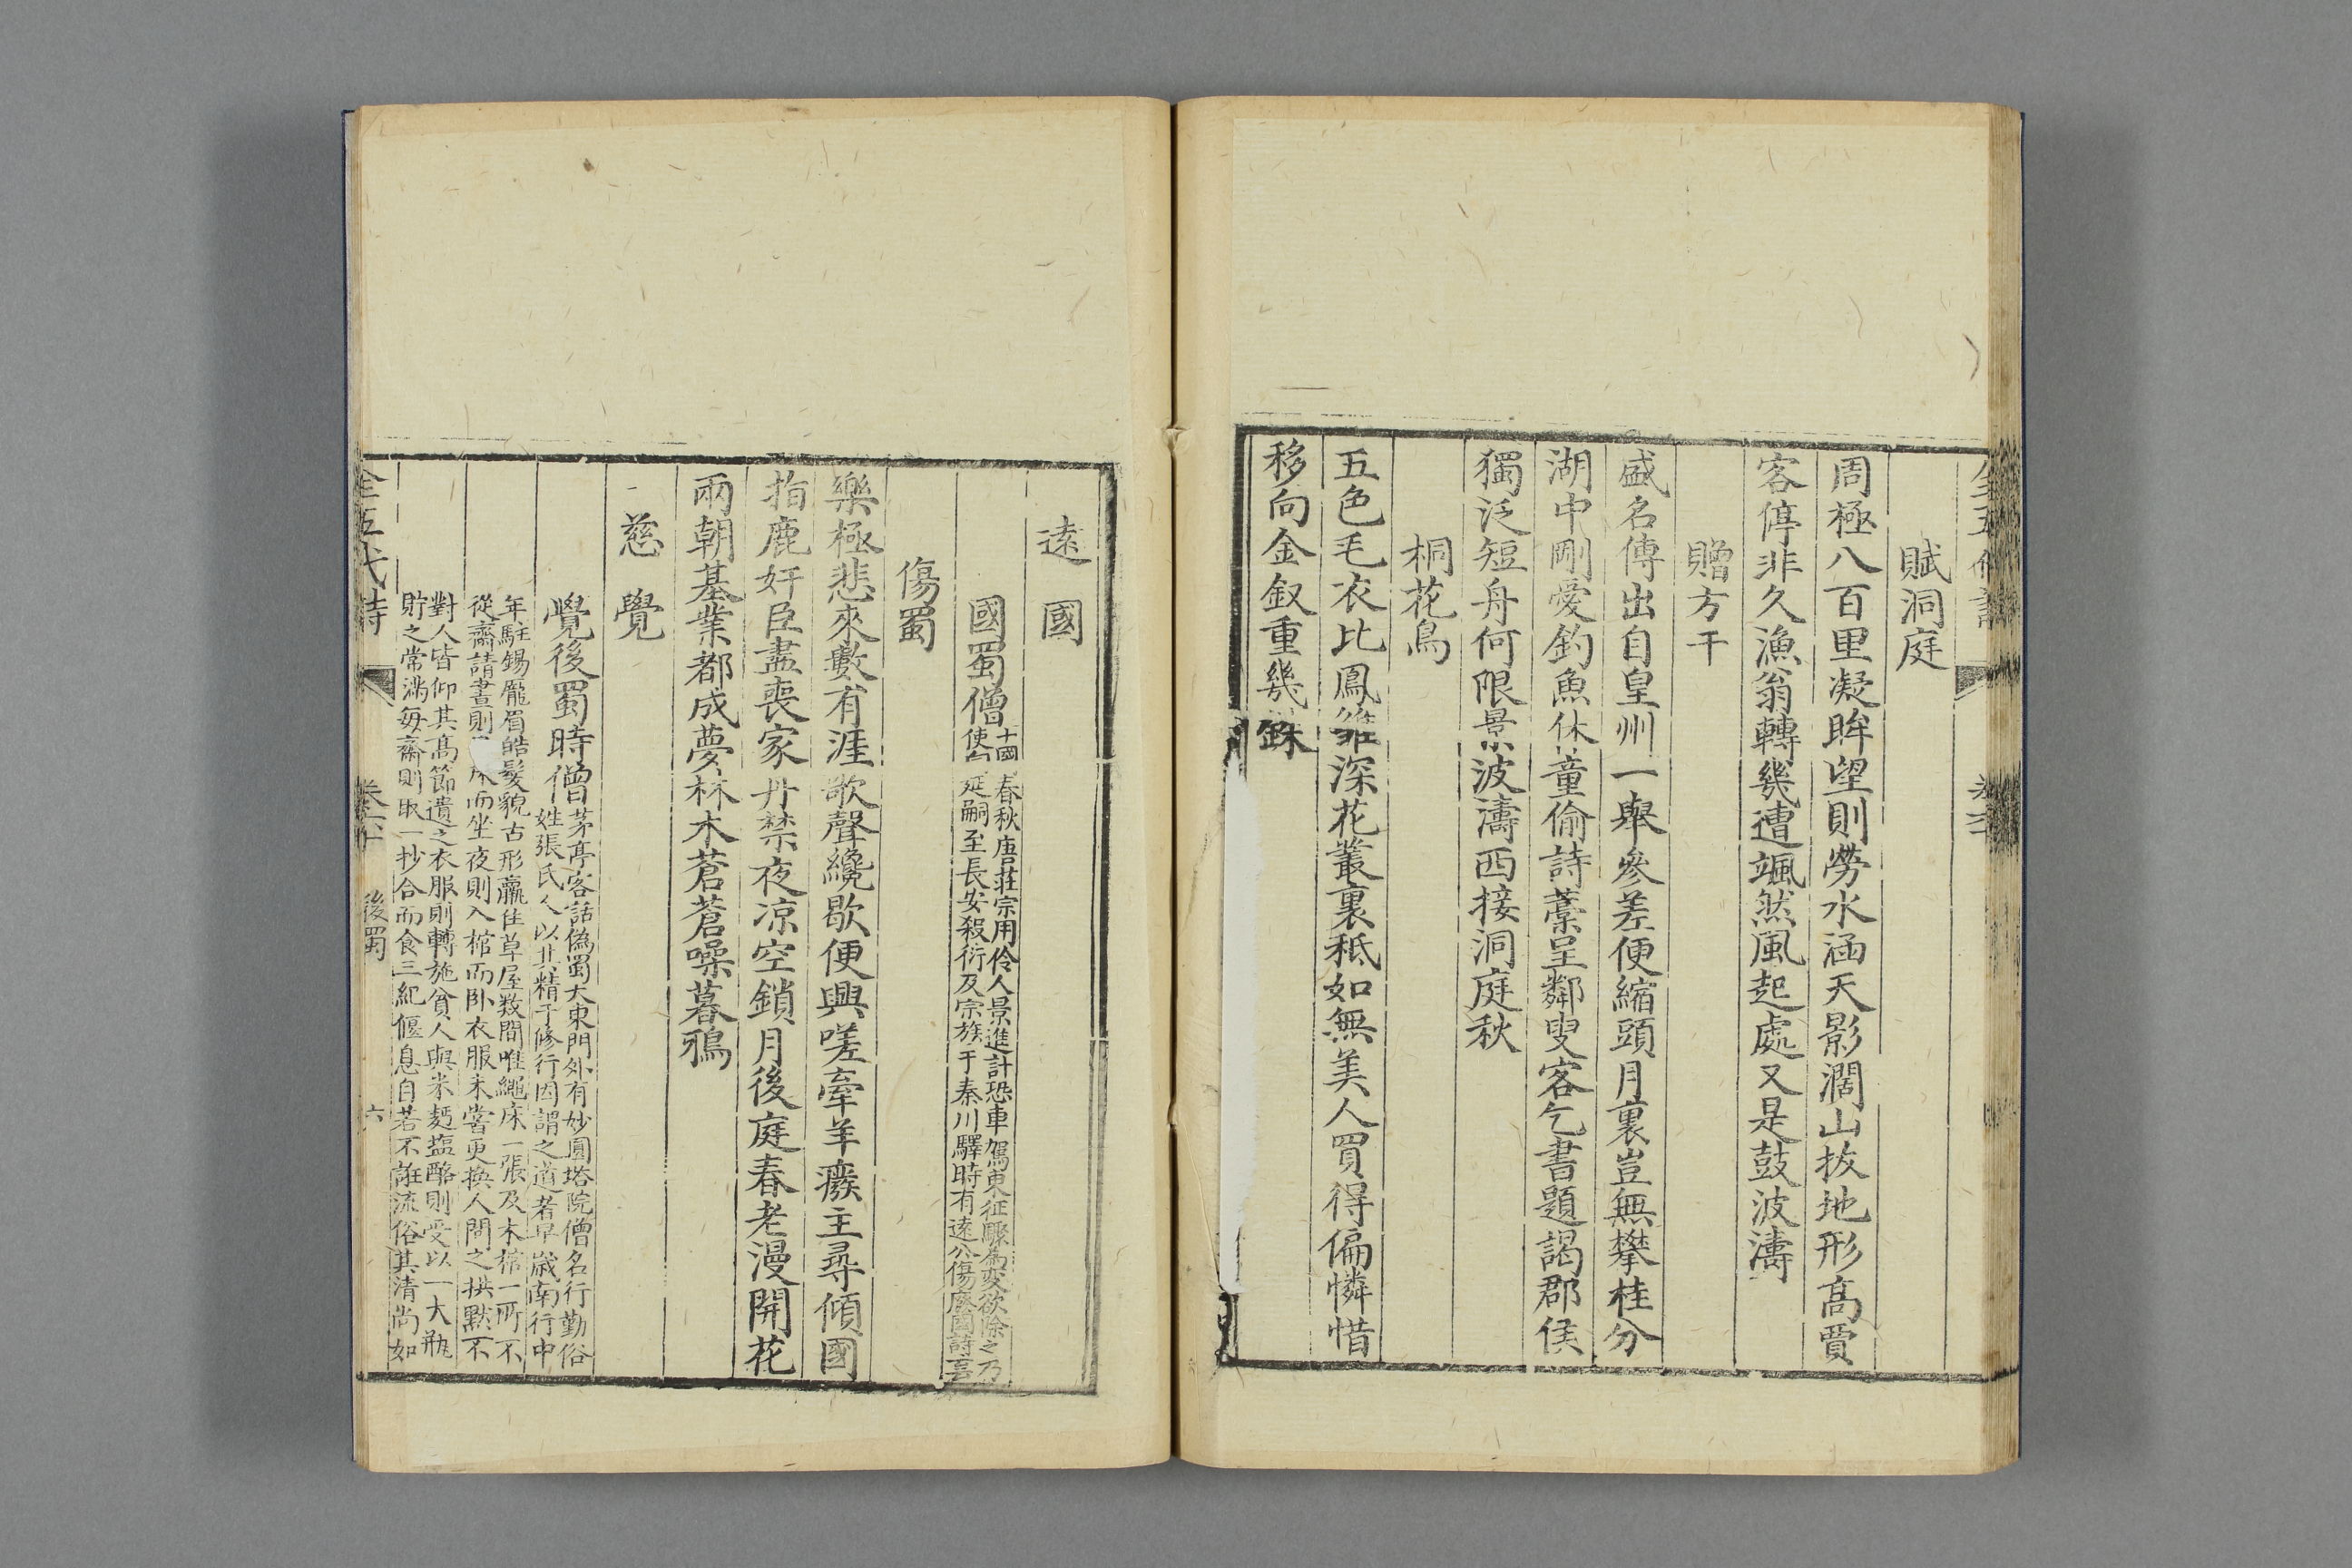 賦洞庭
周極八百里凝眸望則勞水涵天影濶山拔地形高賈
客停非久漁翁轉幾遭颯然風起處又是鼓波濤
贈方干
盛名傳出自皇州一舉參差便縮頭月裏豈無攀桂分
湖中剛愛釣魚休童偷詩藁呈鄰叟客乞書題謁郡侯
獨泛短舟何限景波濤西接洞庭秋
桐花鳥
五色毛衣比鳳雛深花叢裏秪如無美人買得偏憐惜
移向金釵重幾銖
遠國
國蜀僧十國春秋唐莊宗用伶人景進計恐車駕東征驟爲変欲除之乃
使向延嗣至長安殺衍及宗族于秦川驛時有遠公傷廢國詩云云
傷蜀
樂極悲來數有涯歌聲纔歇便興嗟牽羊癈主尋傾國
指鹿奸臣盡喪家丹禁夜凉空鎖月後庭春老漫開花
兩朝基業都成夢林木蒼蒼噪暮鴉
慈覺
覺後蜀時僧茅亭客話僞蜀大東門外有妙圓塔院僧名行勤俗
姓張氏人以其精于修行因謂之道者早歲南行中
年駐錫龎眉皓髮貌古形羸住草屋数間唯繩床一張及木棺一所不
從齋請晝則床而坐夜則入棺而卧衣服未嘗更換人問之拱默不
對人皆仰其高節遺之衣服則轉施貧人與米麫塩酪則受以一大瓶
貯之常滿每齋則取一抄合而食三紀偃息自若不誑流俗其清尚如
全五代詩
卷六十
後蜀
六